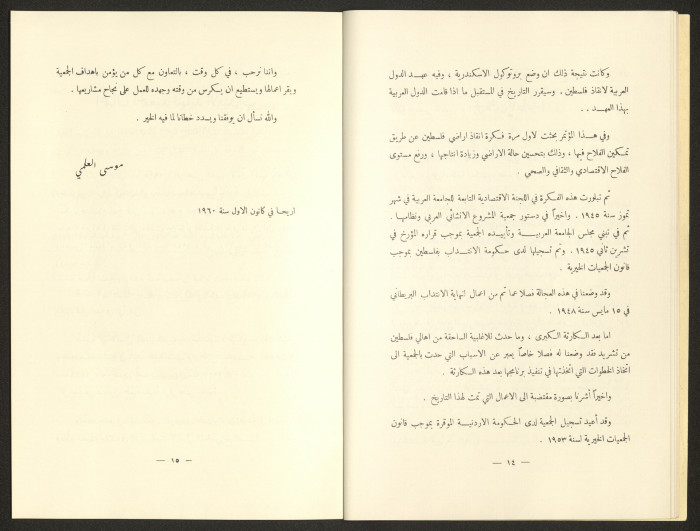 وكانت نتيجة ذلك ان وضع بروتوكول الاسكندرية ، وفيه عهد الدول
العربية لانقاذ فلسطين . وسيقرر التاريخ في المستقبل ما اذا قامت الدول العربية
بهذا العهد . .
وفي هذا المؤتمر بحثت لاول مرة فكرة انقاذ اراضي فلسطين عن طريق
تمكين الفلاح فيها ، وذلك بتحسين حالة الاراضي وزيادة انتاجها ، ورفع مستوى
الفلاح الاقتصادي والثقافي والصحي .
ثم تبلورت هذه الفكرة في اللجنة الاقتصادية التابعة للجامعة العربية في شهر
تموز سنة ١٩٤٥ . واخيراً في دستور جمعية المشروع الانشائي العربي ونظامها .
ثم في تبني مجلس الجامعة العربية وتأييده الجمعية بموجب قراره المؤرخ في
تشرين ثاني ١٩٤٥ . وتم تسجيلها لدى حكومة الانتداب بفلسطين بموجب
قانون الجمعيات الخيرية .
وقد وضعنا في هذه العجالة فصلا عما تم من اعمال لنهاية الانتداب البريطاني
في ١٥ مايس سنة ١٩٤٨ .
اما بعد الكارثة الكبرى ، وما حدث للاغلبية الساحقة من اهالي فلسطين
من تشريد فقد وضعنا له فصلا خاصاً يعبر عن الاسباب التي حدت بالجمعية الى
اتخاذ الخطوات التي اتخذتها في تنفيذ برنامجها بعد هذه الكارثة .
واخيراً أشرنا بصورة مقتضبة الى الاعمال التي تمت لهذا التاريخ .
وقد أعيد تسجيل الجمعية لدى الحكومة الاردنية الموقرة بموجب قانون
الجمعيات الخيرية لسنة ١٩٥٣ .
— ١٤ —
واننا نرحب ، في كل وقت ، بالتعاون مع كل من يؤمن باهداف الجمعية
ويقر اعمالها ويستطيع ان يكرس من وقته وجهده للعمل على نجاح مشاريعها .
والله نسأل ان يوفقنا ويسدد خطانا لما فيه الخير . .
موسى العلمي
اريحا في كانون الاول سنة ١٩٦٠
— ١٥ —